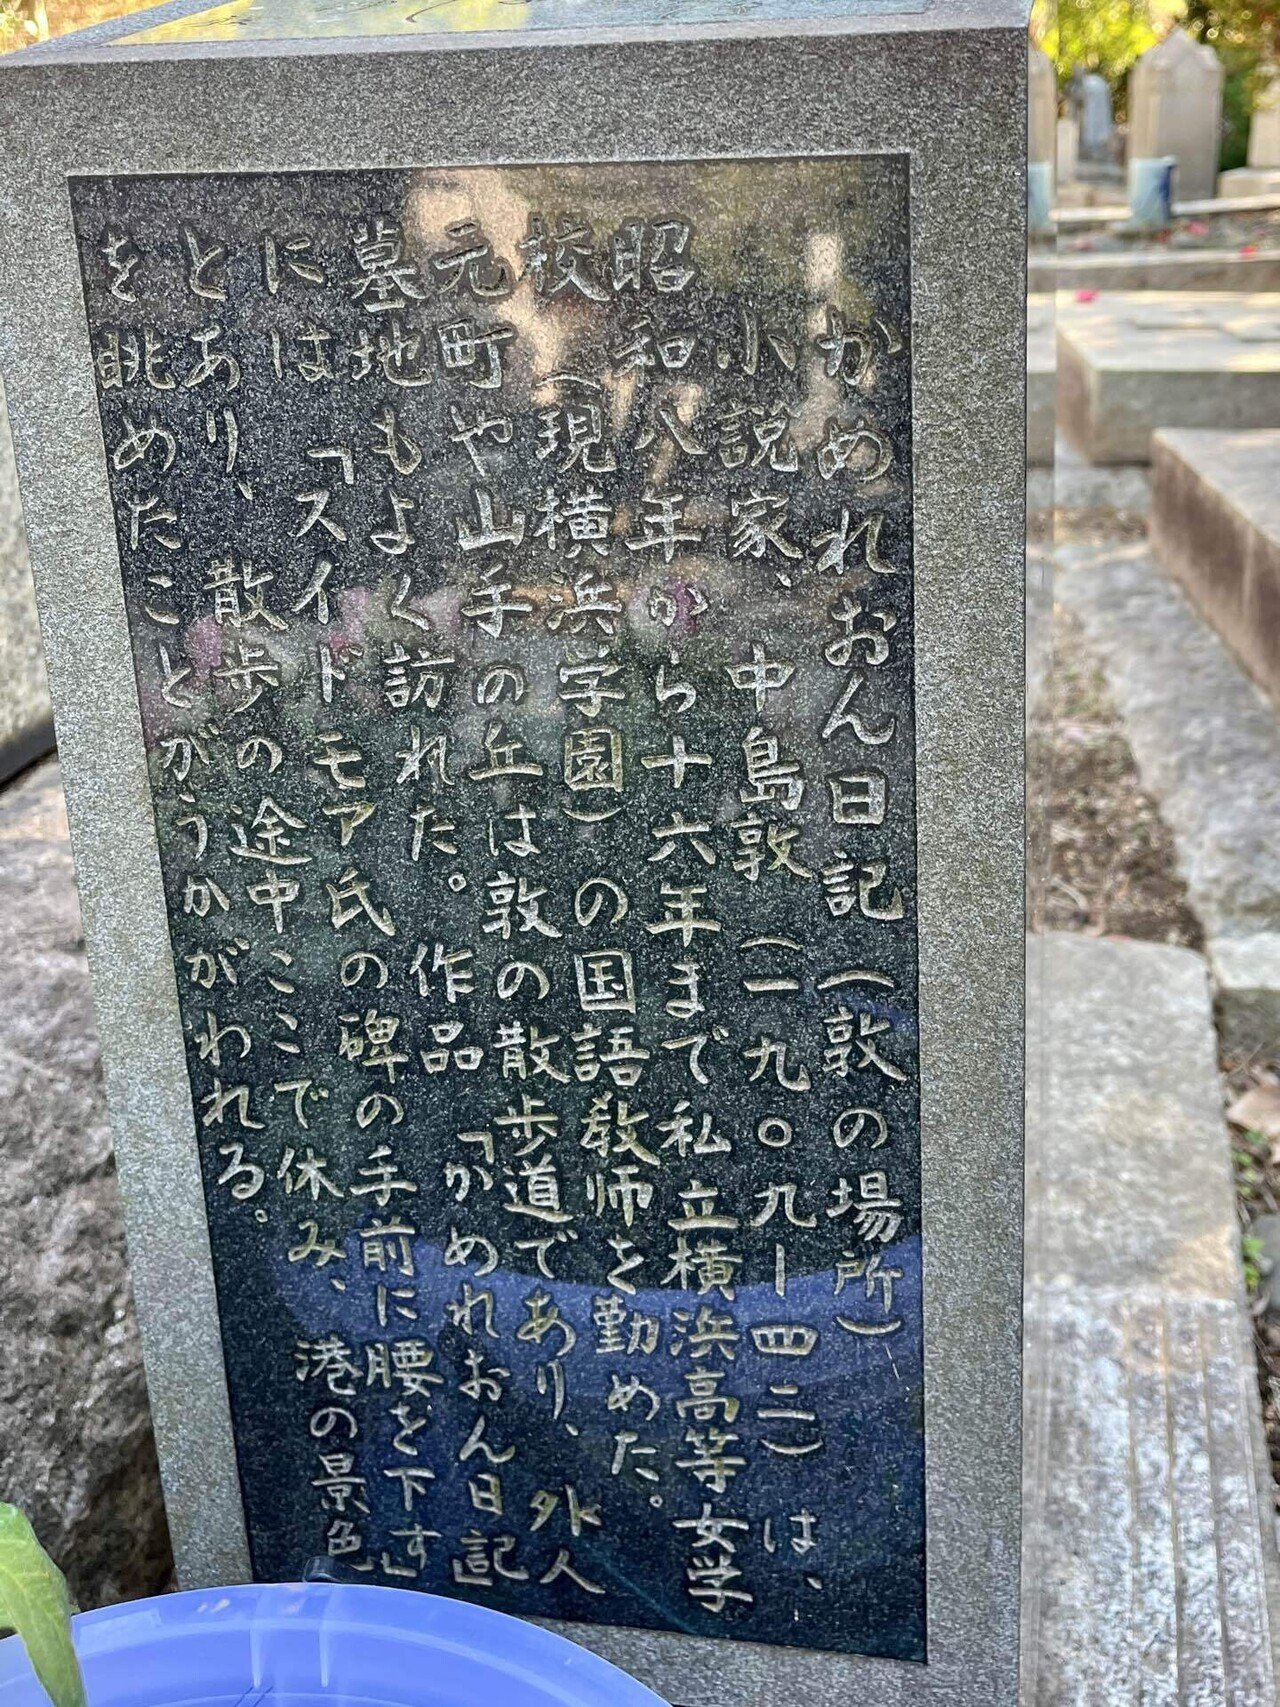 かめれおん日記（敦の場所）
小説家、中島敦（一九〇九ー四二）は、
昭和八年から十六年まで私立横浜高等女学
校（現横浜学園）の国語教師を勤めた。
元町や山手の丘は敦の散歩道であり、外人
墓地もよく訪れた。作品「かめれおん日記」
には「スイドモア氏の碑の手前に腰を下す」
とあり、散歩の途中ここで休み、港の景色
を眺めたことがうかがわれる。